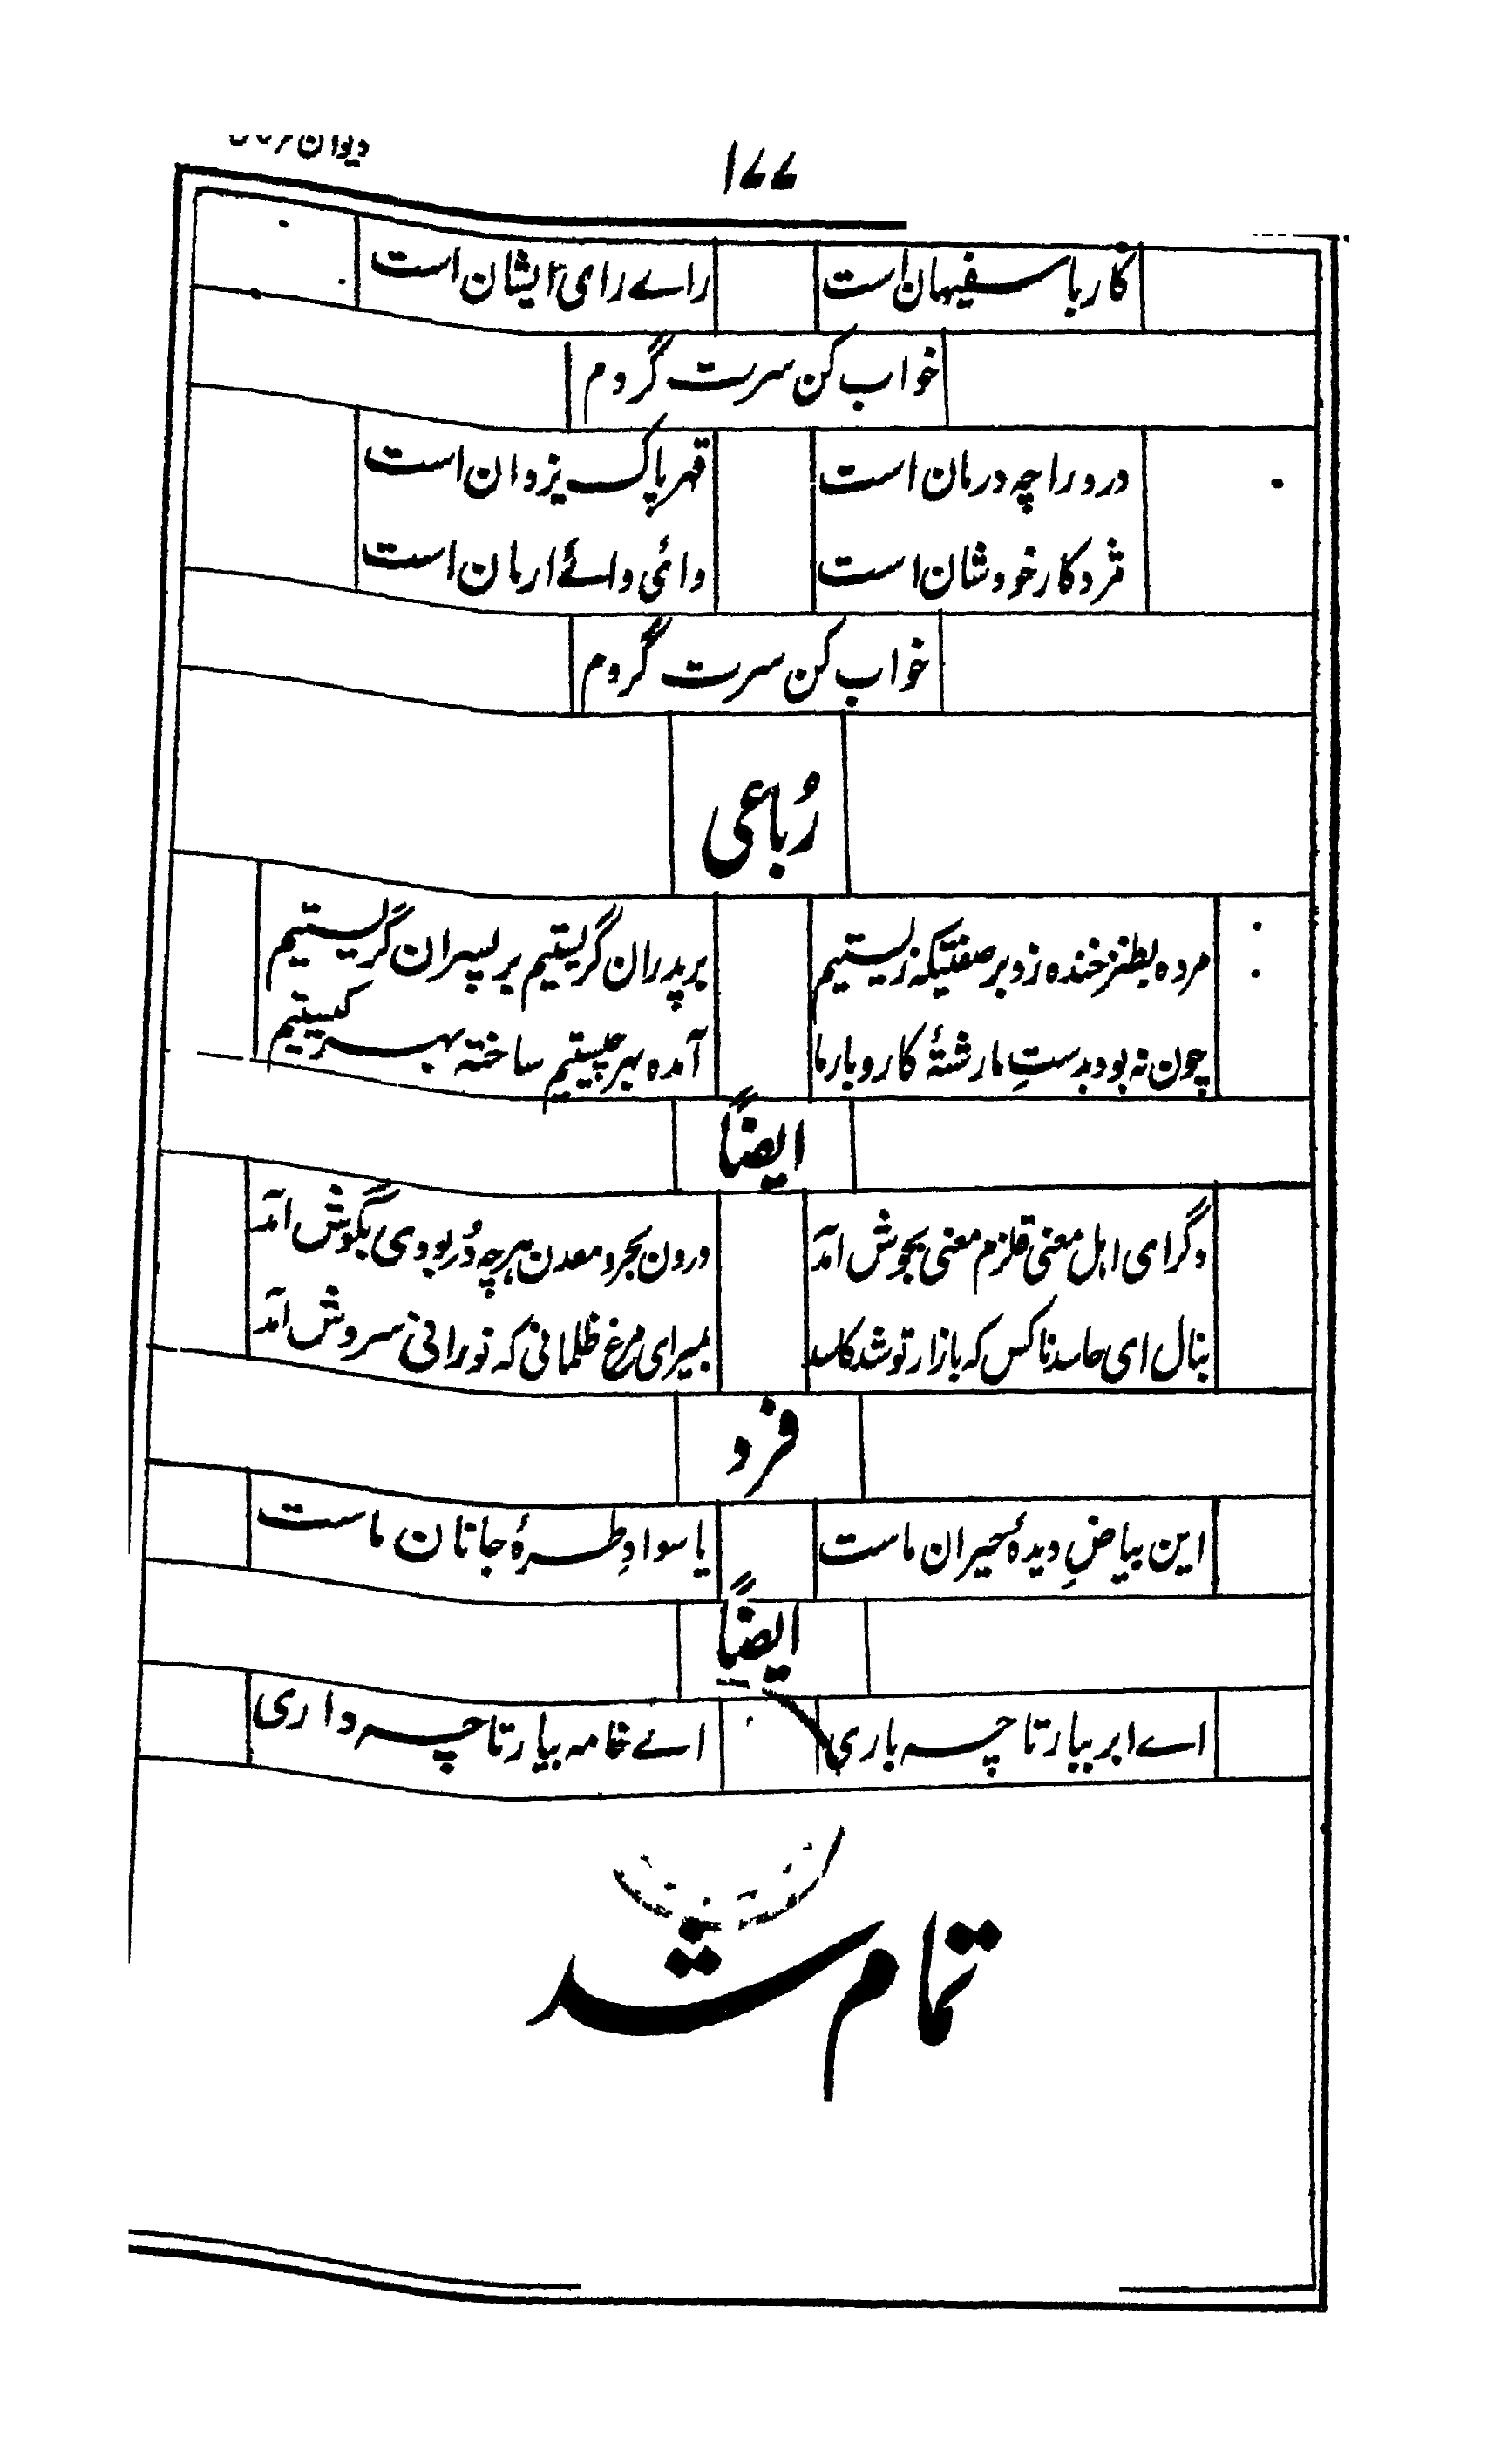 ۱۷۷
دیوان
کار با سفیہان است راے رای ایشان است
خواب کن سرت گردم
درد را چہ درمان است قہر پاک یزدان است
مُزد کار خود شان است وائی وائے ارمان است
خواب کن سرت گردم
رُباعی
مردہ بطنز خندہ زد بر صفتیکہ زیستیم بر پدران گریستیم بر پسران گریستیم
چون نہ بود بدستِ ما رشتۂ کاروبار ما آمدہ بہر چیستیم ساختہ بہر کیستیم
ایضاً
دگر ای اہل معنی قلزم معنی بجوش آمد درون بحر و معدن ہرچہ دُر بودی بگوش آمد
بنال ای حاسد ناکس کہ بازار تو شد کاسد بمیر ای مرغ ظلمانی کہ نورانی سروش آمد
فرد
این بیاضِ دیدۂ حیران ماست یا سوادِ طرۂ جانان ماست
ایضاً
اے ابر بیار تا چہ باری اے خامہ بیار تا چہ داری
تمام شد